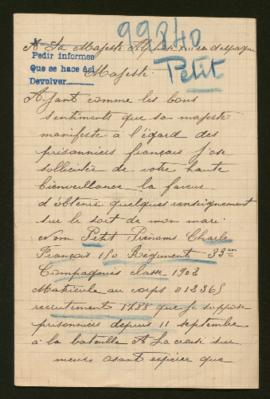 99840
A Sa Majesté Alphonse
Pedir informes
Que se hace así
Devolver
Majesté.
Petit
Ayant comme les bons
sentiments que sa majesté
manifeste à l'égard des
prisonniers français j'ose
solliciter de votre haute
bienveillance la faveur
d'obtenir quelques renseignement
sur le sort de mon mari
Nom Petit Prénoms Charles
François Régiment 33
Compagnies classe 1903
Matricule au corps
recrutement que je suppose
prisonniers depuis 11 septembre
à la bataille